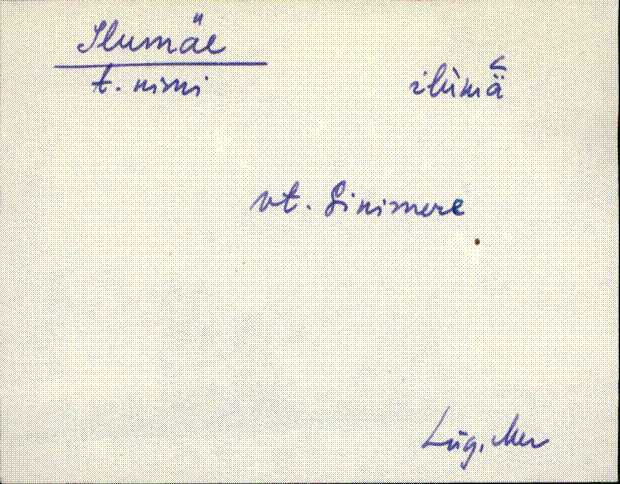 Ilumäe
t. nimi ilùmä̆
vt. Sinimere
Lüg, Mer